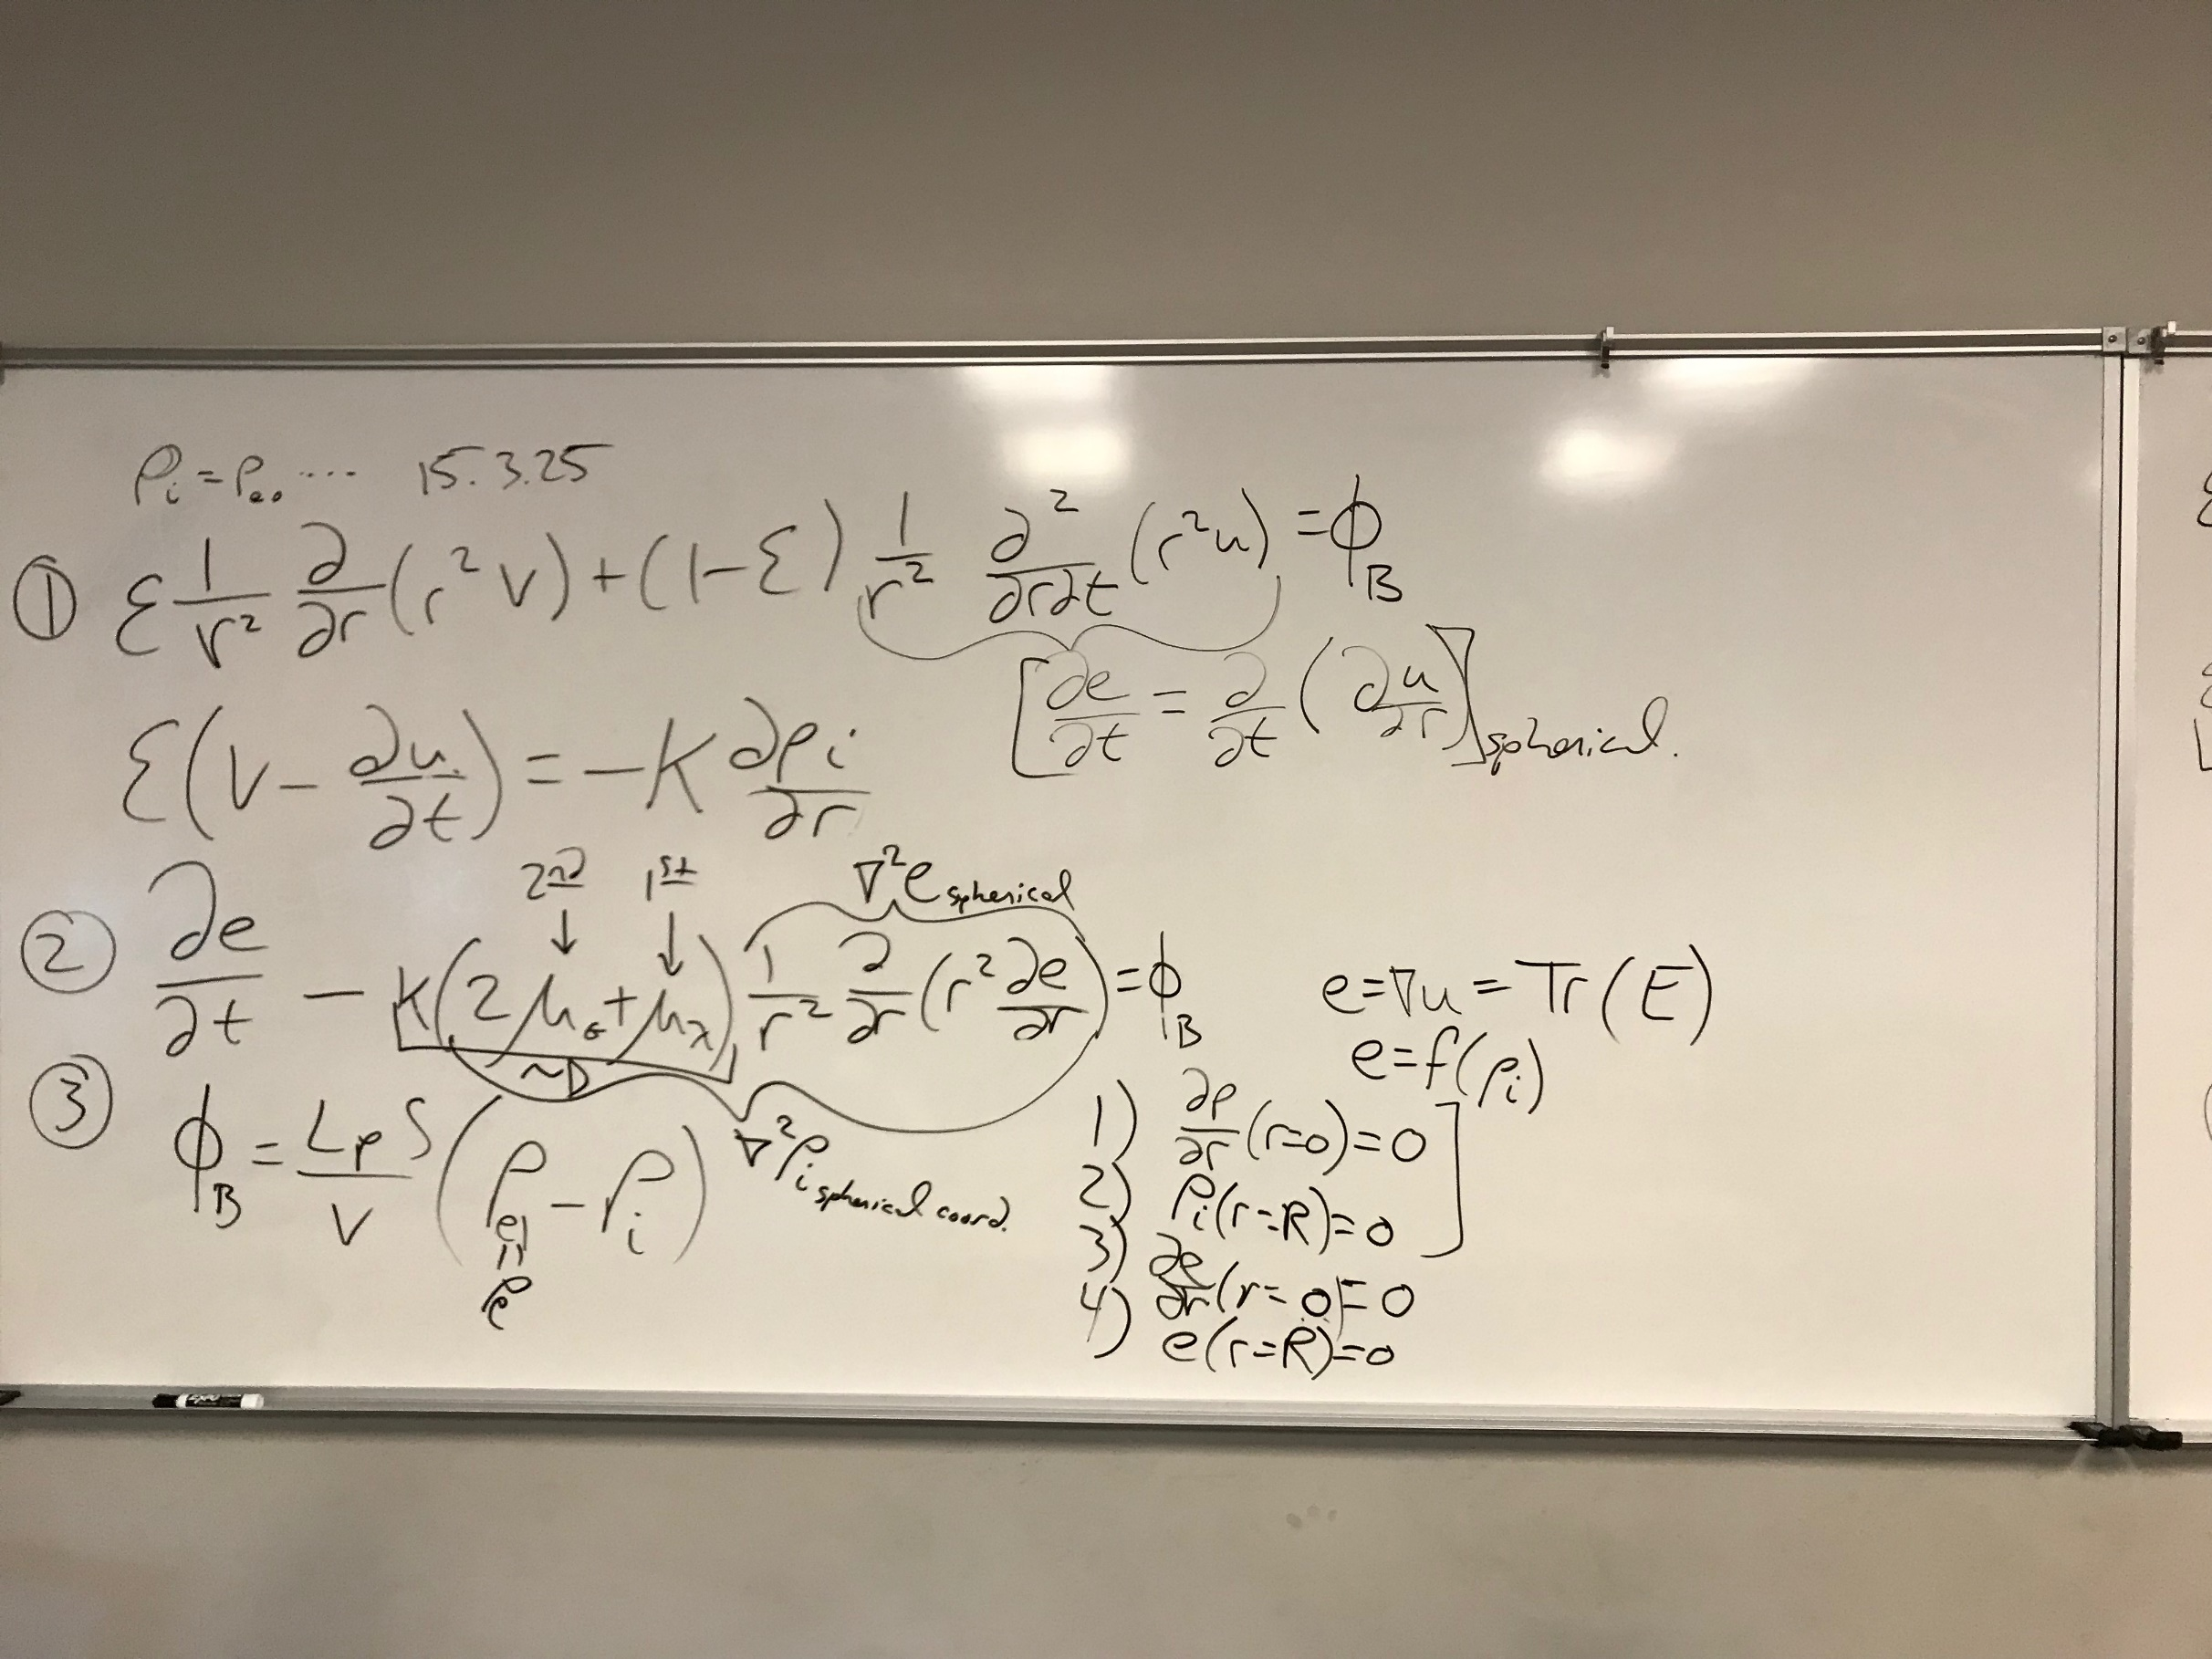 Pi = P∞ .... 15.3.25
① ε 1/r² ∂/∂r (r² v) + (1-ε) 1/r² ∂²/∂r∂t (r² u) = ϕB
[∂e/∂t = ∂/∂t (∂u/∂r)] spherical.
ε(v - ∂u/∂t) = -K ∂Pi/∂r
2nd ↓ 1st ↓ ∇²e spherical
② ∂e/∂t - K(2μG + μλ) 1/r² ∂/∂r (r² ∂e/∂r) = ϕB
~D
e = ∇u = Tr(E)
e = f(Pi)
③ ϕB = LpS/V (Pe - Pi)
∇²Pi spherical coord.
1) ∂P/∂r (r=0) = 0
2) Pi (r=R) = 0
3) ∂e/∂r (r=0) = 0
4) e (r=R) = 0